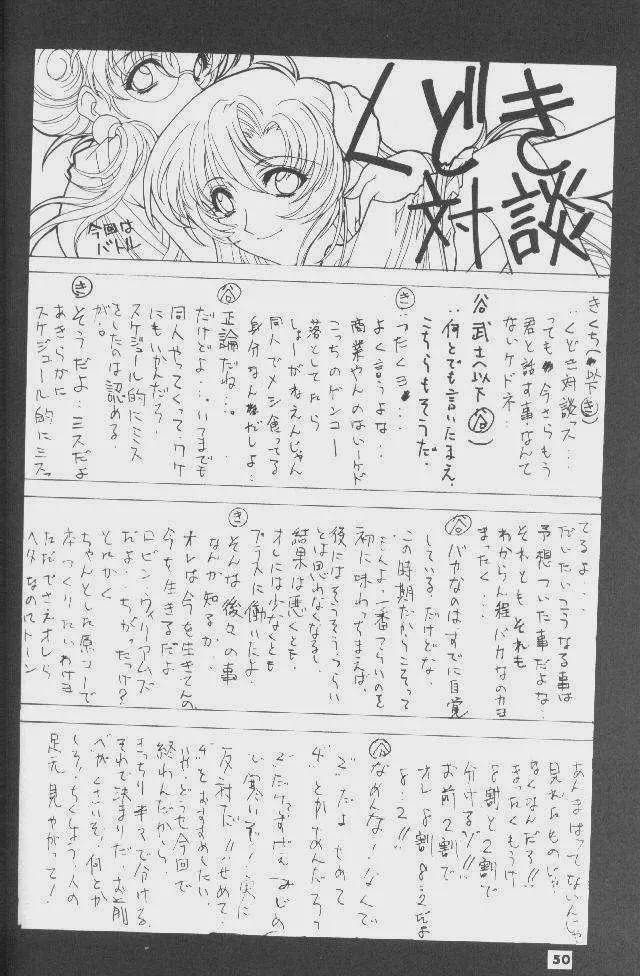 くどき
対談
今回は
バトル
きくち(以下き)
‥くどき対談ってス‥
っても今さらもう
君と話す事なんて
ないケドネ‥
谷 武士(以下谷)
‥何とでも言いたまえ。
こちらもそうだ。
き
‥ったくョ‥
よく言うよな‥
商業やんのはいーケド
こっちのゲンコー
落としてたら
しょーがねえんじゃん
同人でメシ食ってる
身分なんだしよ‥
谷
正論だね‥。
だけどよ‥いつまでも
同人やってくってワケ
にもいかんだろ?
スケジュール的にミス
をしたのは認める
が。
き
そうだよ‥ミスだよ
あきらかに
スケジュール的にミスっ
てるよ‥
だいたいこうなる事は
予想ついた事だよな‥
それとも それも
わからん程バカなのかき
まったく‥
谷
バカなのはすでに自覚
している。だけどな‥
この時期だからこそって
もんよ‥一番つらいのを
初に味わっちまえば、
後にはそうそうつらい
とは思わなくなるし
結果は悪くとも、
オレには少なくとも
プラスに働いたよ‥
き
そんな後々の事
なんか知るか
オレは今を生きてんの
今を生きるだよ
ロビン・ウィリアムズ
だよ‥ちがったっけ?
とにかく
ちゃんとした原コーで
本つくりたいわけョ
ただでさえオレら
ヘタなのにトーン
あんまはってないんじゃ
見れたもので‥
なくなんだろ!!
まったくもうけ
8割と2割で
分けるゾ!!
お前2割で
オレ8割 8:2だよ
8:2!!
谷
なめんな!なんで
2だよ せめて
4とかなんだろ
反対だ!!せめて
4とおすすめしたい。
や、どうせ今回で
終わんだから、
きっちり半々で分ける
それで決まりだ お前
足元見やがって!
50